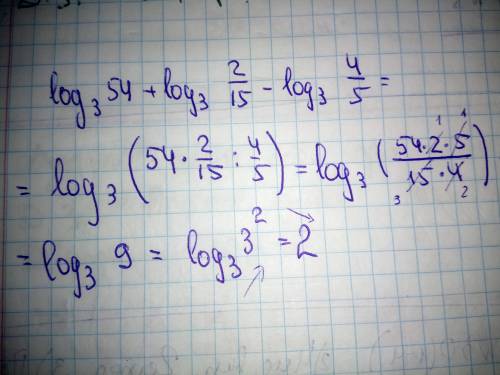 log₃ 54 + log₃ 2/15 - log₃ 4/5 =
= log₃ (54 · 2/15 : 4/5) = log₃ (54·2·5 / 15·4) 1 1 3 2
= log₃ 9 = log₃ 3² = 2